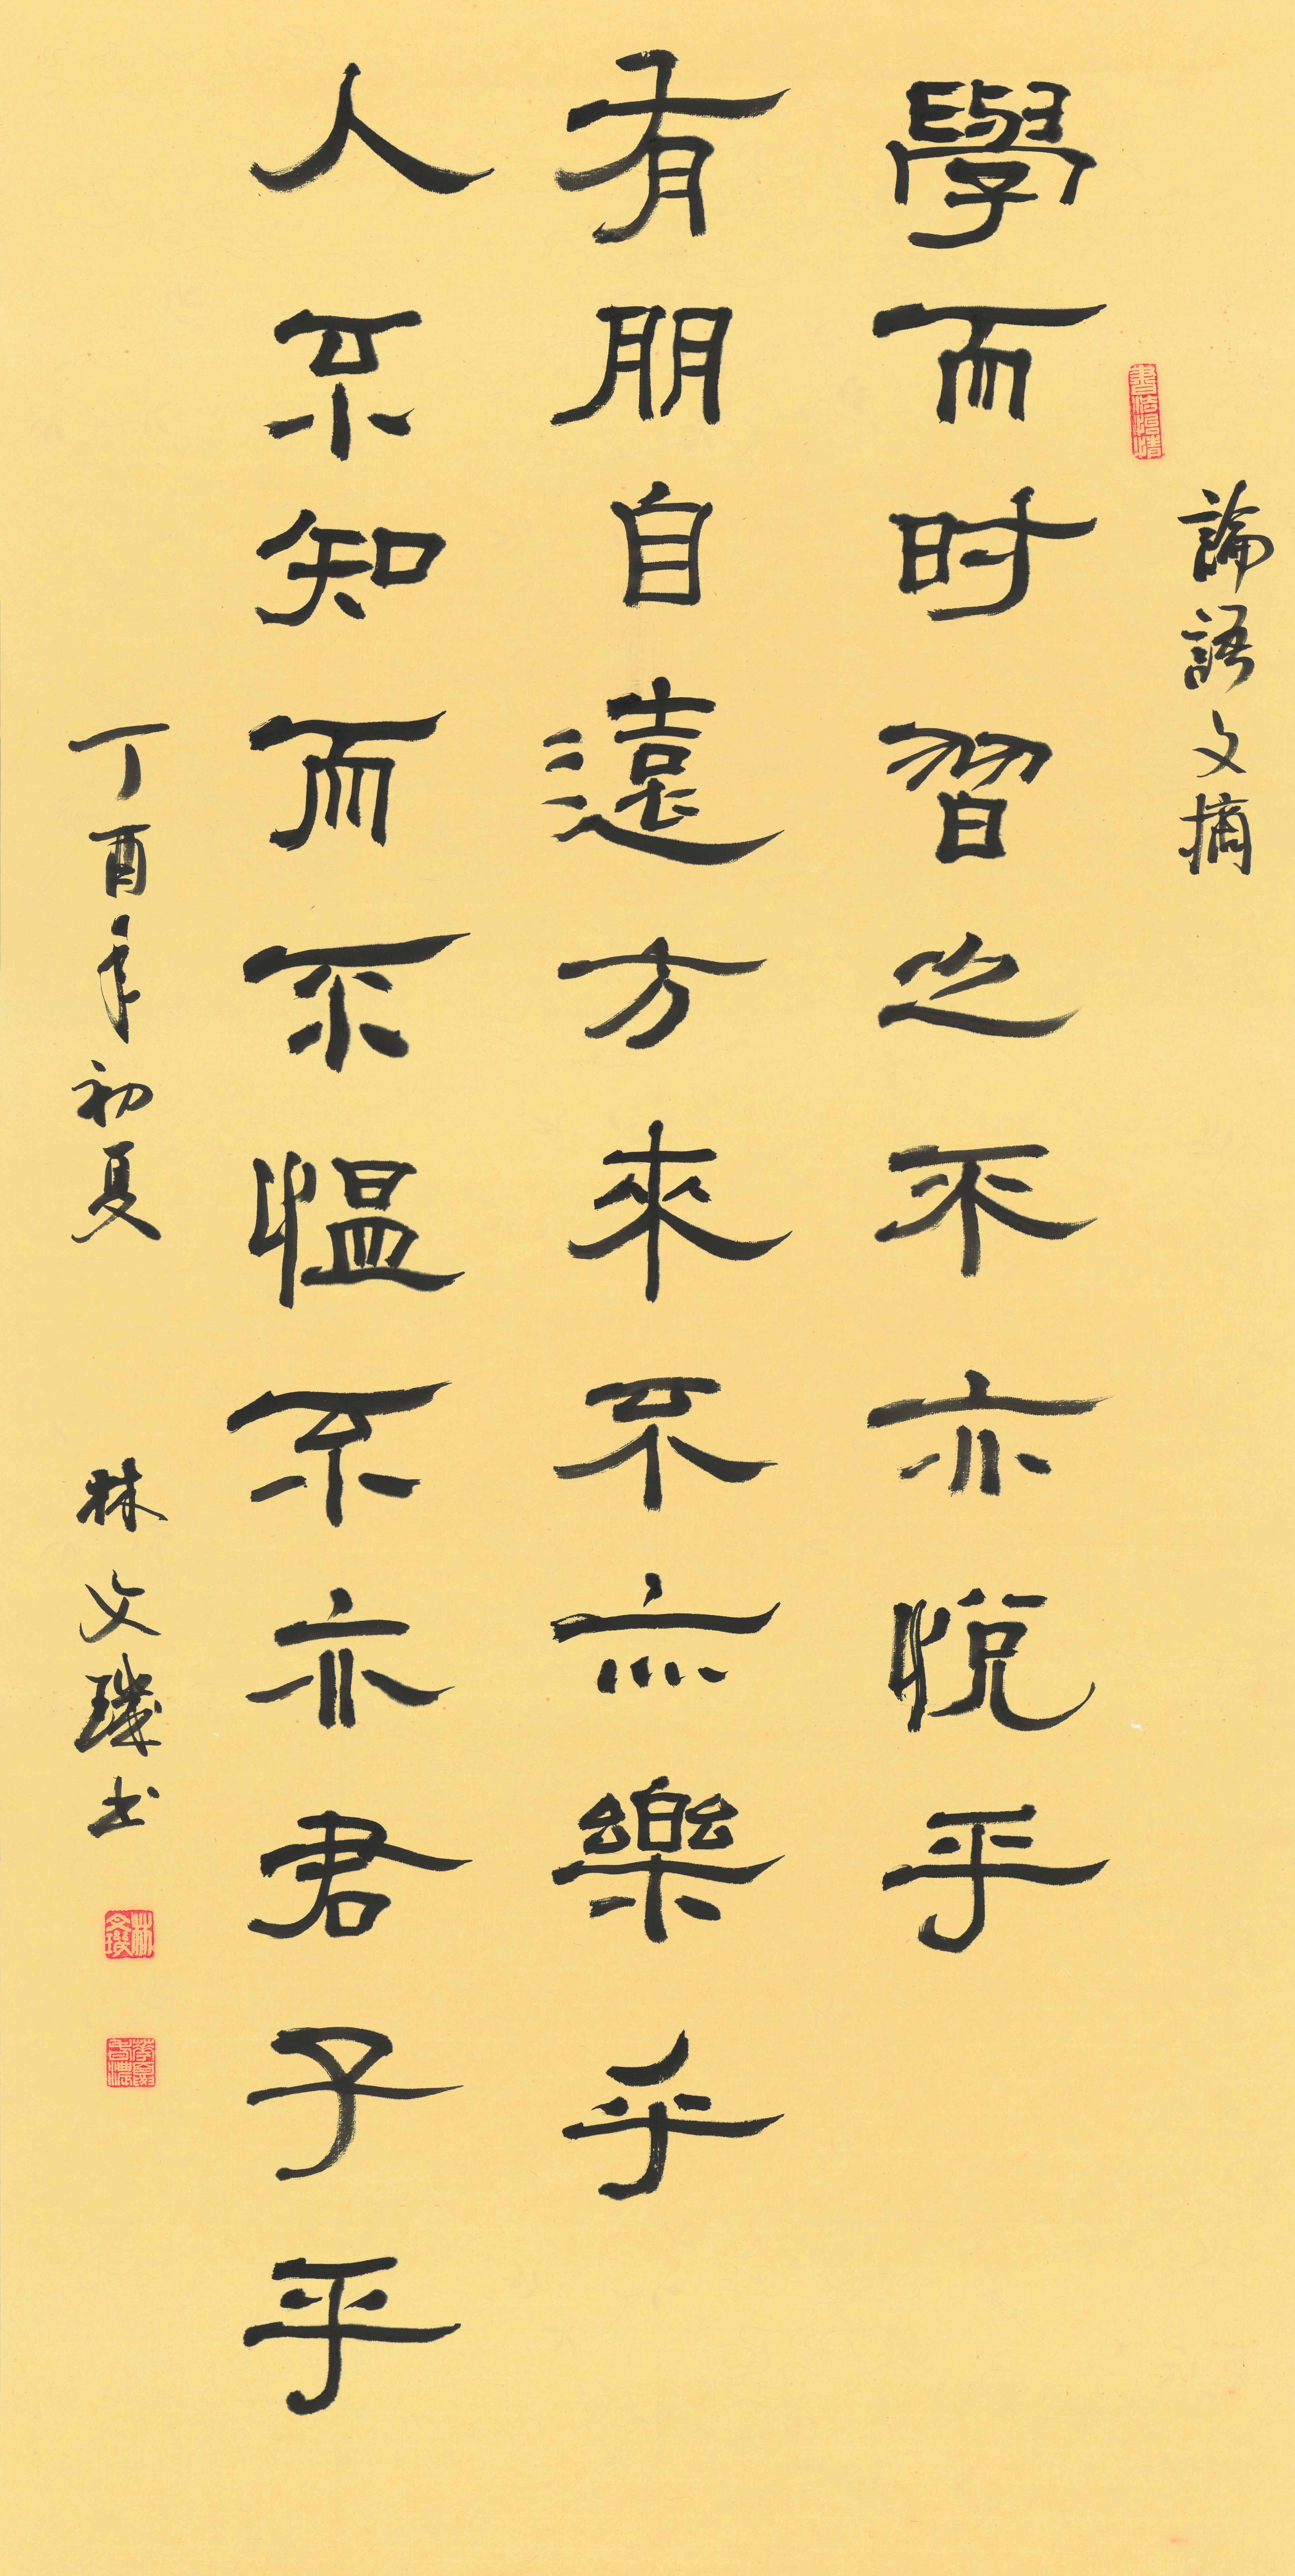 論語文摘
書法怡情
學而时習之不亦悅乎
有朋自遠方來不亦樂乎
人不知而不愠不亦君子乎
丁酉年初夏 林文璣书